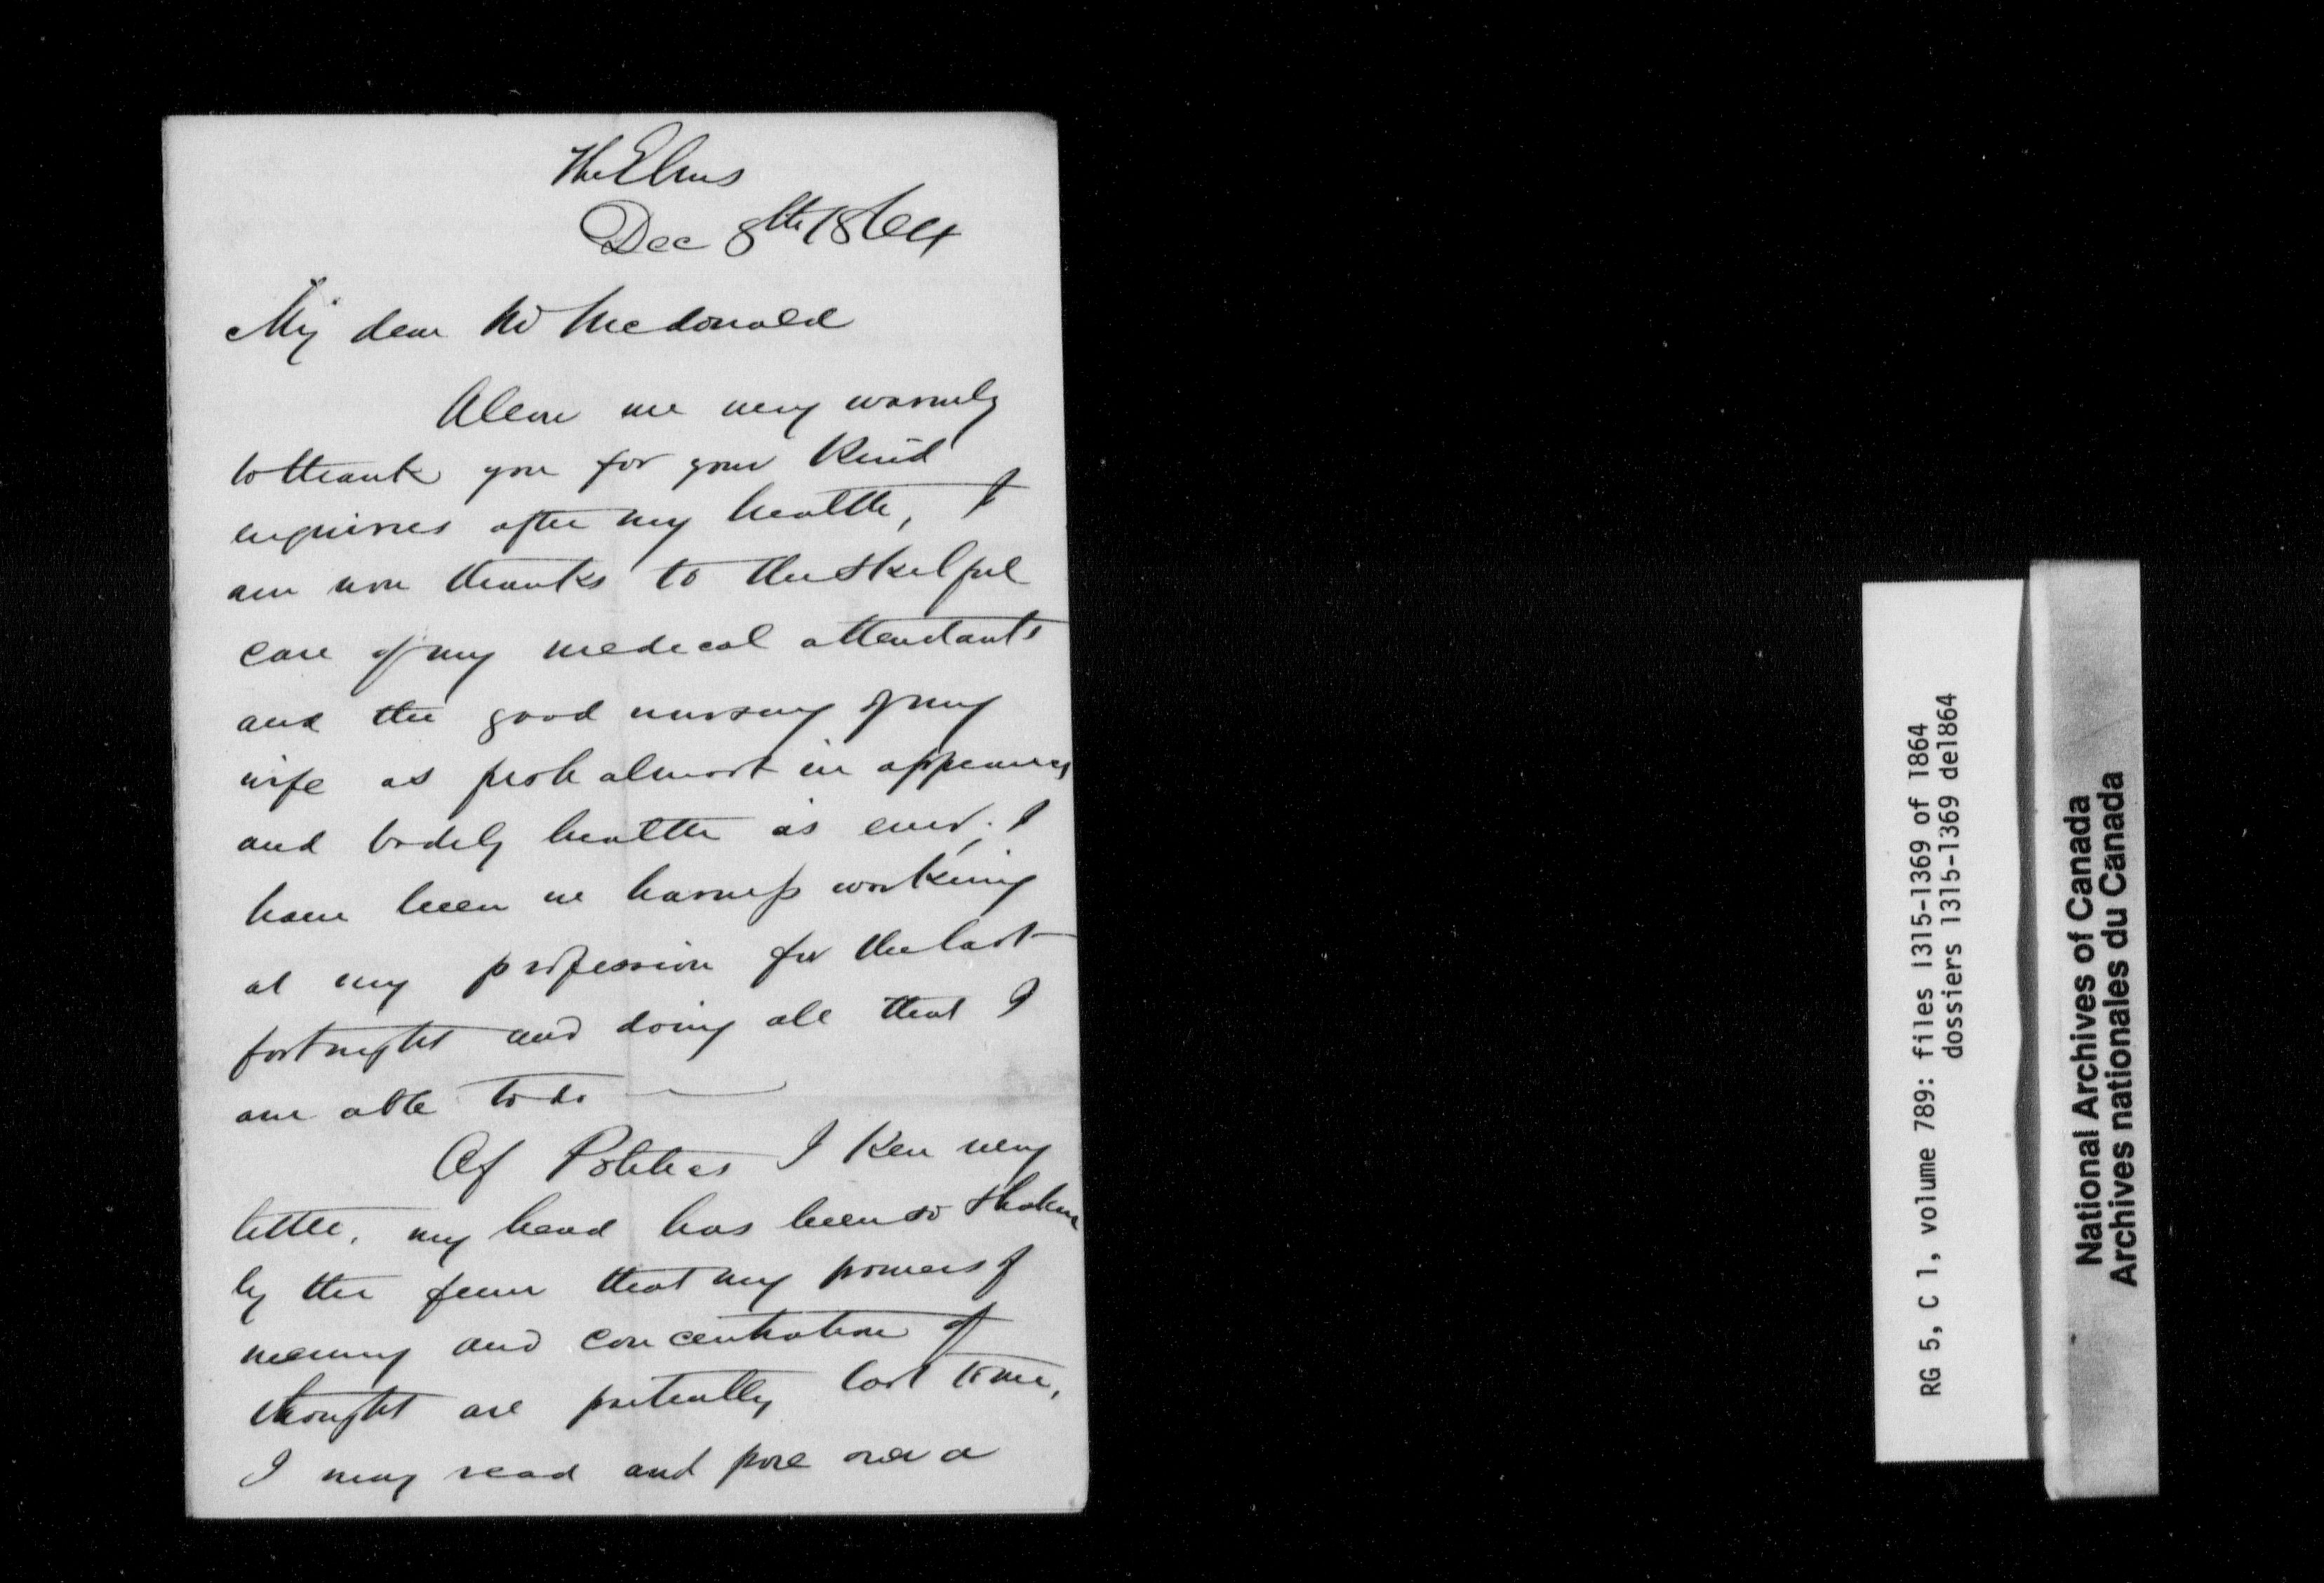 The Elms
Dec 8th 1864
My dear Mr McDonald
Allow me very warmly
to thank you for your kind
enquiries after my health, I
am now thanks to the skilful
care of my medical attendants
and the good nursing of my
wife as fresh almost in appearance
and bodily health as ever. I
have been in harness working
at my profession for the last
fortnight and doing all that I
am able to do
Of Politics I ken very
little, my head has been so shaken
by the fever that my powers of
memory and concentration of
thought are partially lost to me,
I may read and pore over a
RG 5, C 1, volume 789: files 1315-1369 of 1864
dossiers 1315-1369 de1864
National Archives of Canada
Archives nationales du Canada